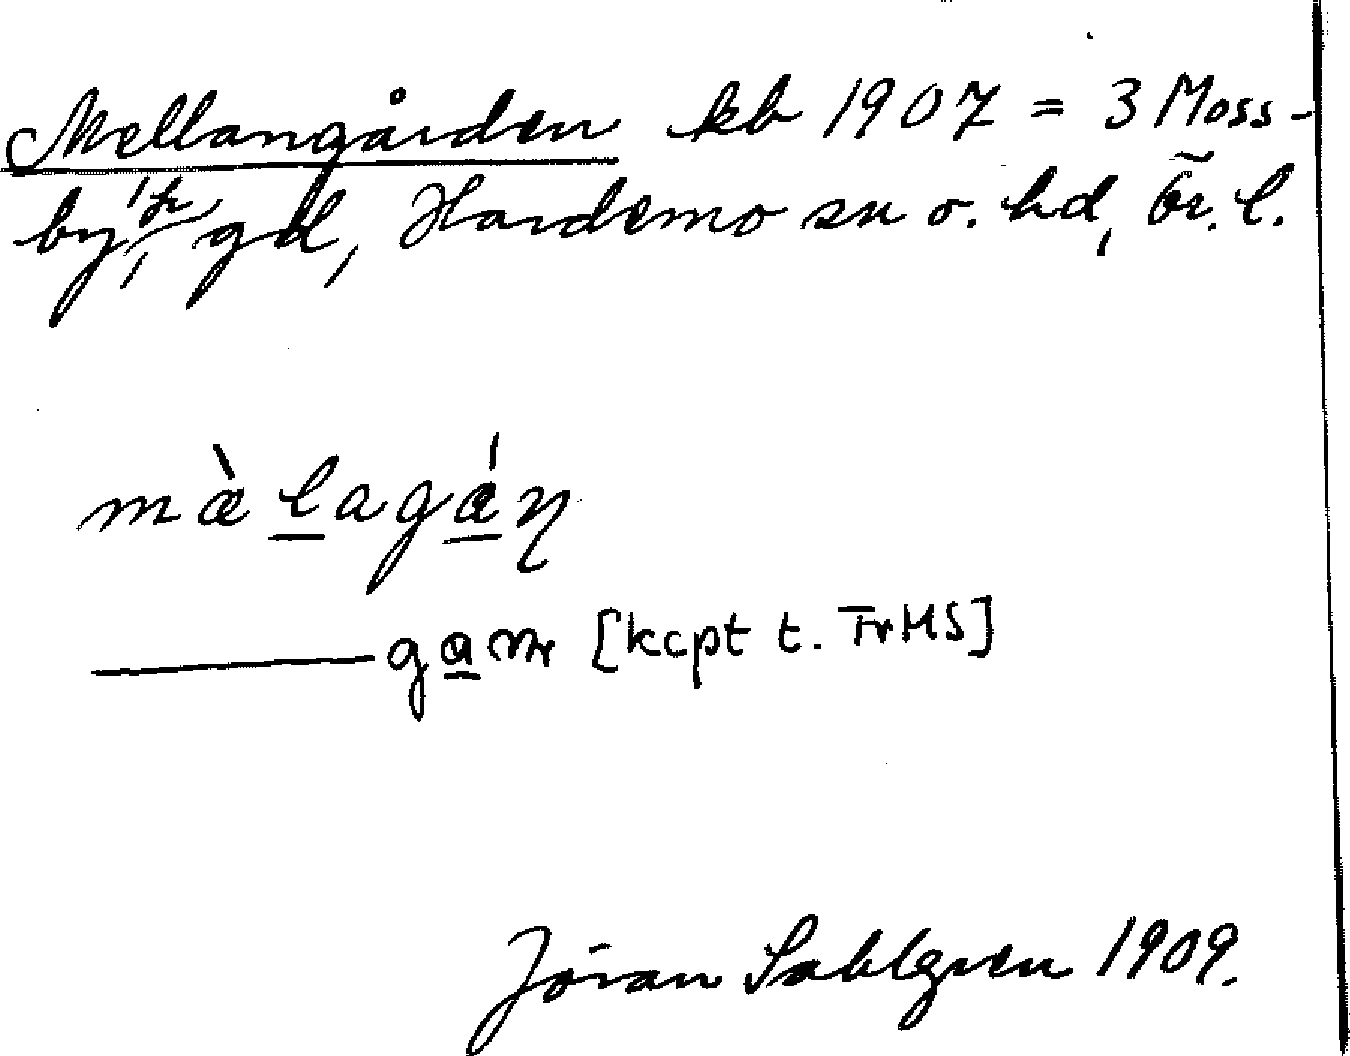 Mellangården kb 1907 = 3 Moss-
by, gd, Hardemo sn o. hd, Ör. l.
mæ̀lagáɳ
———ga [kcpt t. FrHS]
Jöran Sahlgren 1909.